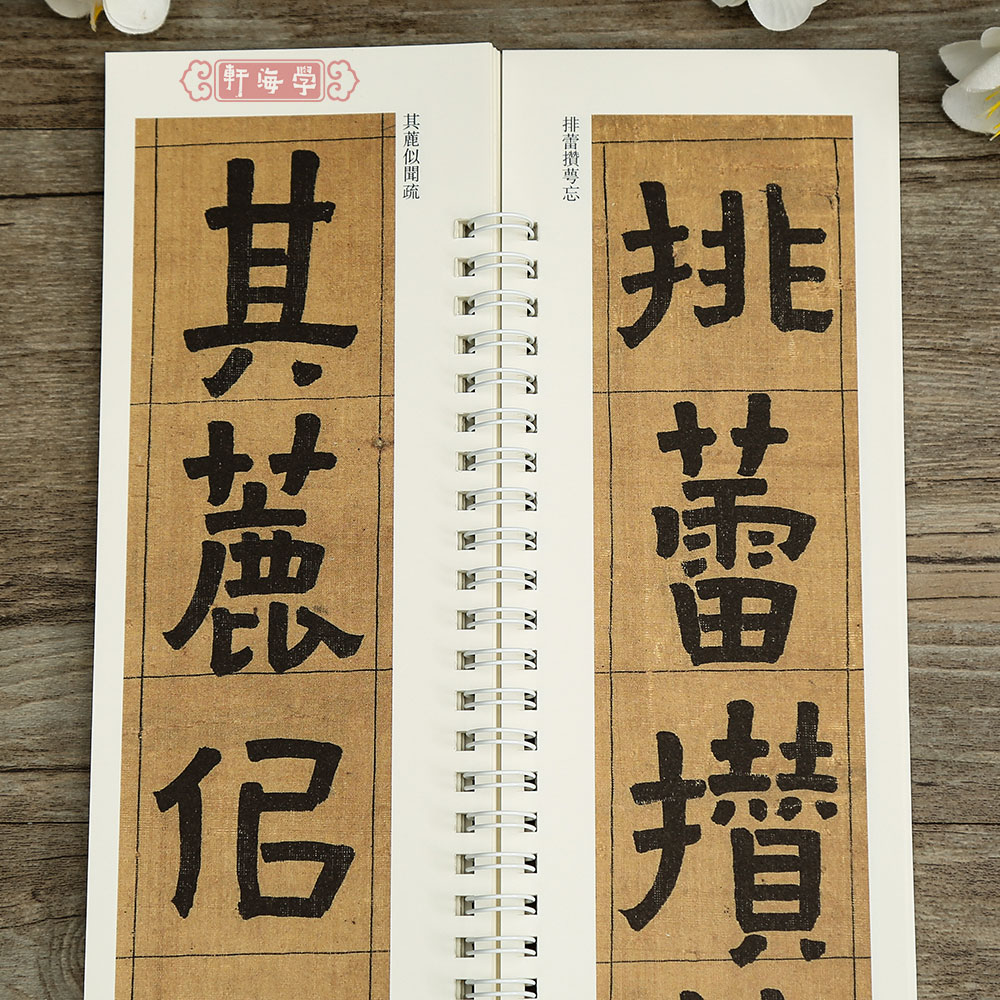 學海軒
排蕾攢萼忘
排蕾攢
其蔍似聞疏
其蔍佀